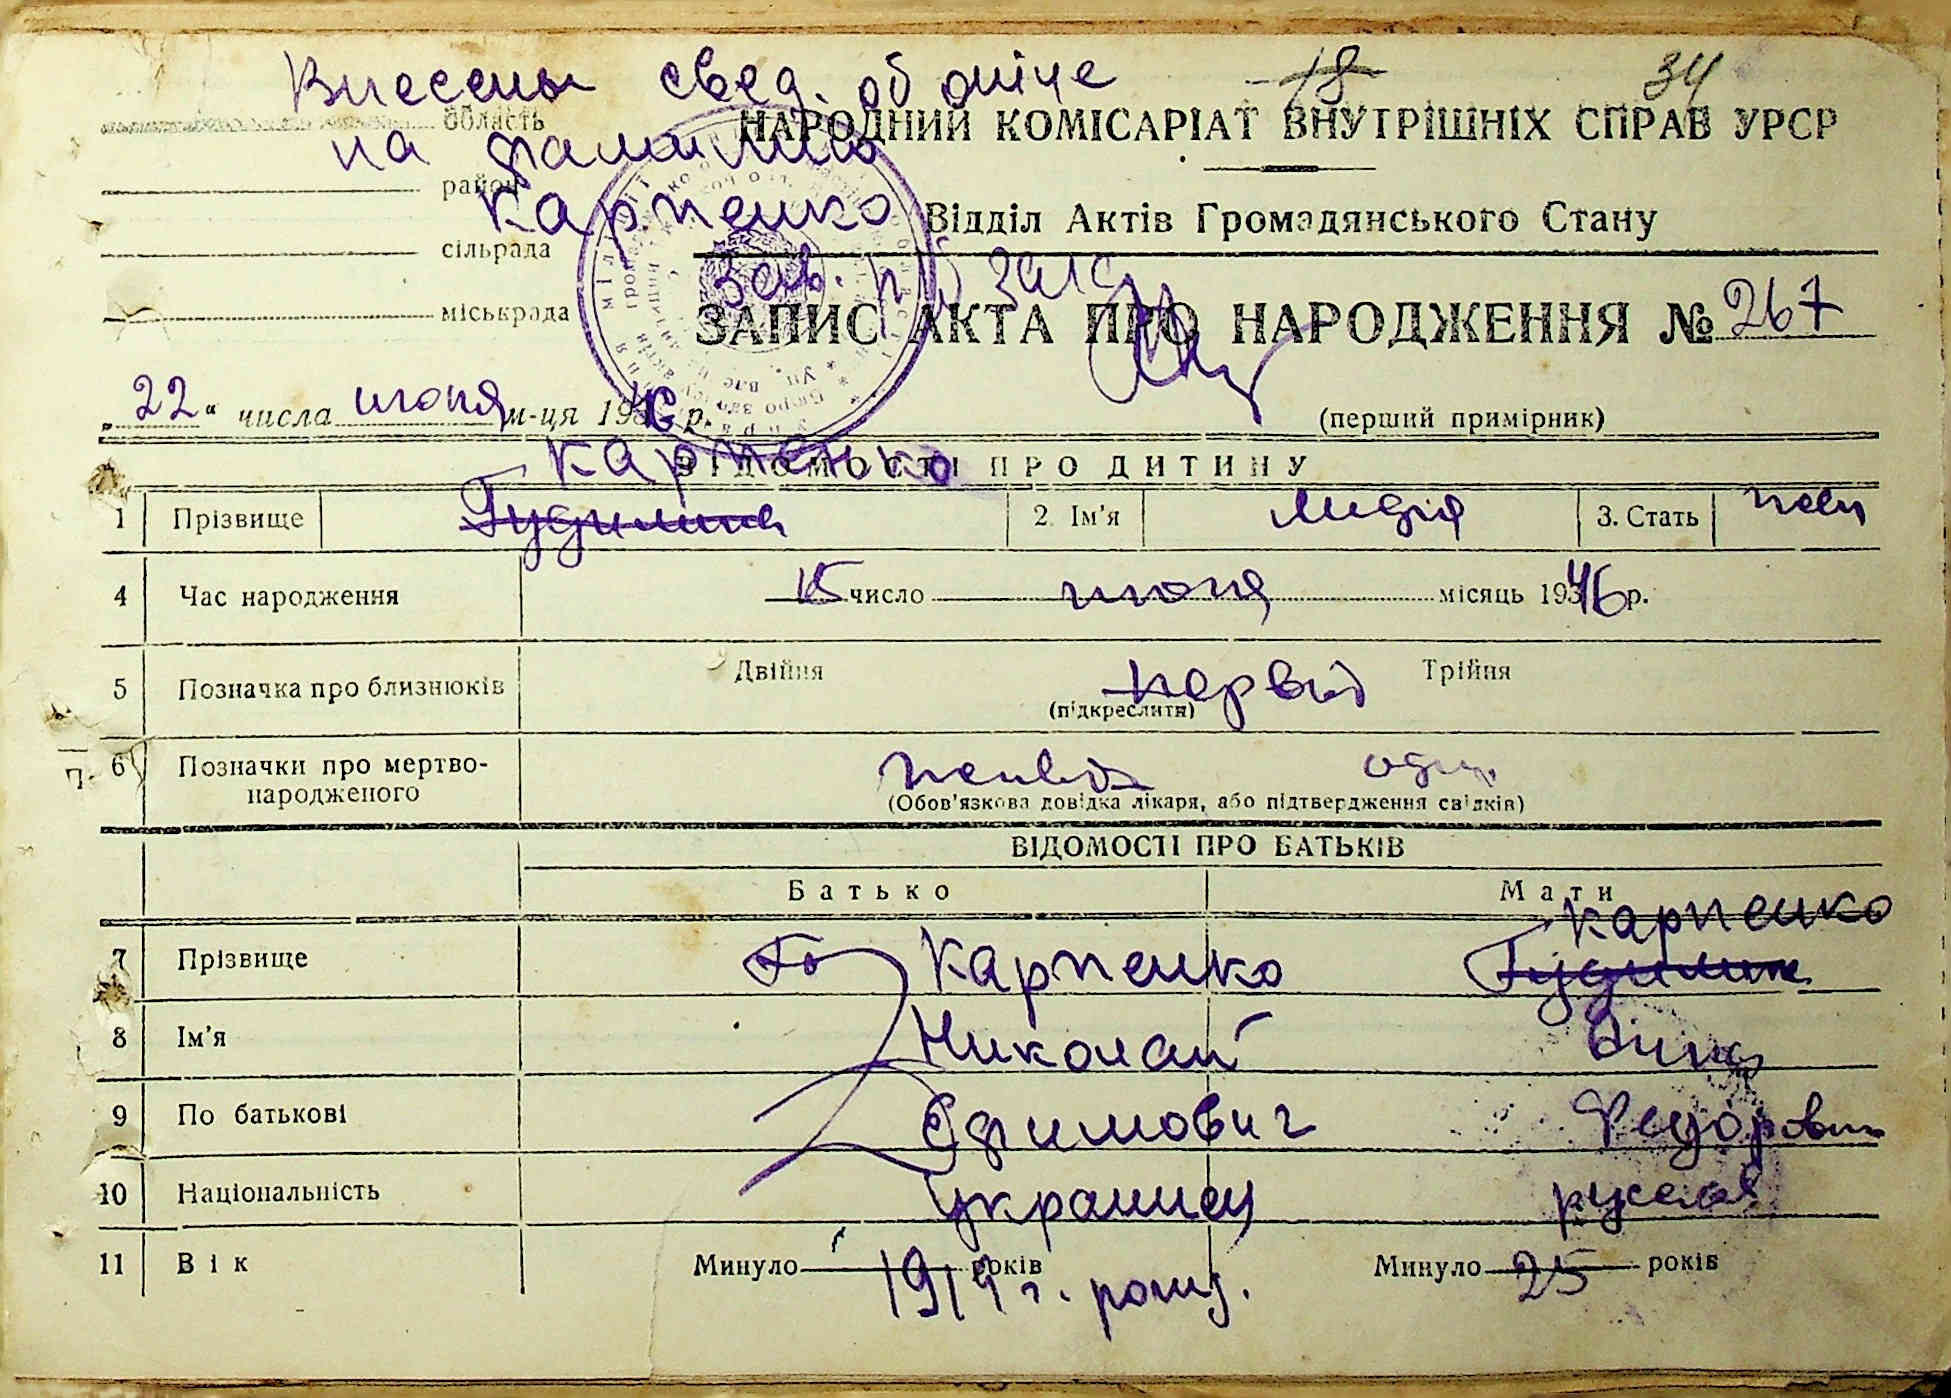 Внесены свед. об отце
18 34
на фамилию
Карпенко
Зав. р/б загс
область
район
сільрада
міськрада
НАРОДНИЙ КОМІСАРІАТ ВНУТРІШНІХ СПРАВ УРСР
Відділ Актів Громадянського Стану
ЗАПИС АКТА ПРО НАРОДЖЕННЯ № 267
„22“ числа июня м-ця 1946 р.
(перший примірник)
ВІДОМОСТІ ПРО ДИТИНУ
Карпенко
1 Прізвище Гудилина 2. Ім'я Лидия 3. Стать жен
4 Час народження 15 число июня місяць 1946 р.
5 Позначка про близнюків Двійня первый Трійня
(підкреслити)
6 Позначки про мертвонародженого один
(Обов'язкова довідка лікаря, або підтвердження свідків)
ВІДОМОСТІ ПРО БАТЬКІВ
Батько Мати
Карпенко
7 Прізвище Карпенко Гудилина
8 Ім'я Николай
9 По батькові Ефимович Федоровна
10 Національність украинец русская
11 Вік Минуло років Минуло 25 років
1914 г. рожд.